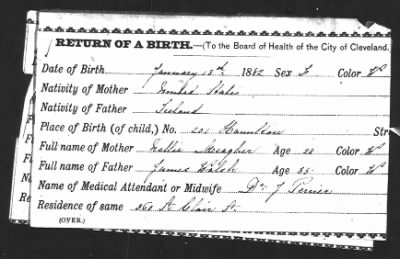 RETURN OF A BIRTH.—(To the Board of Health of the City of Cleveland.
Date of Birth January 13th 1882 Sex F Color W
Nativity of Mother United States
Nativity of Father Ireland
Place of Birth (of child,) No. 201 Hamilton Str
Full name of Mother Meagher Age 28 Color W
Full name of Father James Walsh Age 35 Color W
Name of Medical Attendant or Midwife Dr J
Residence of same 360 St Clair St.
(OVER.)